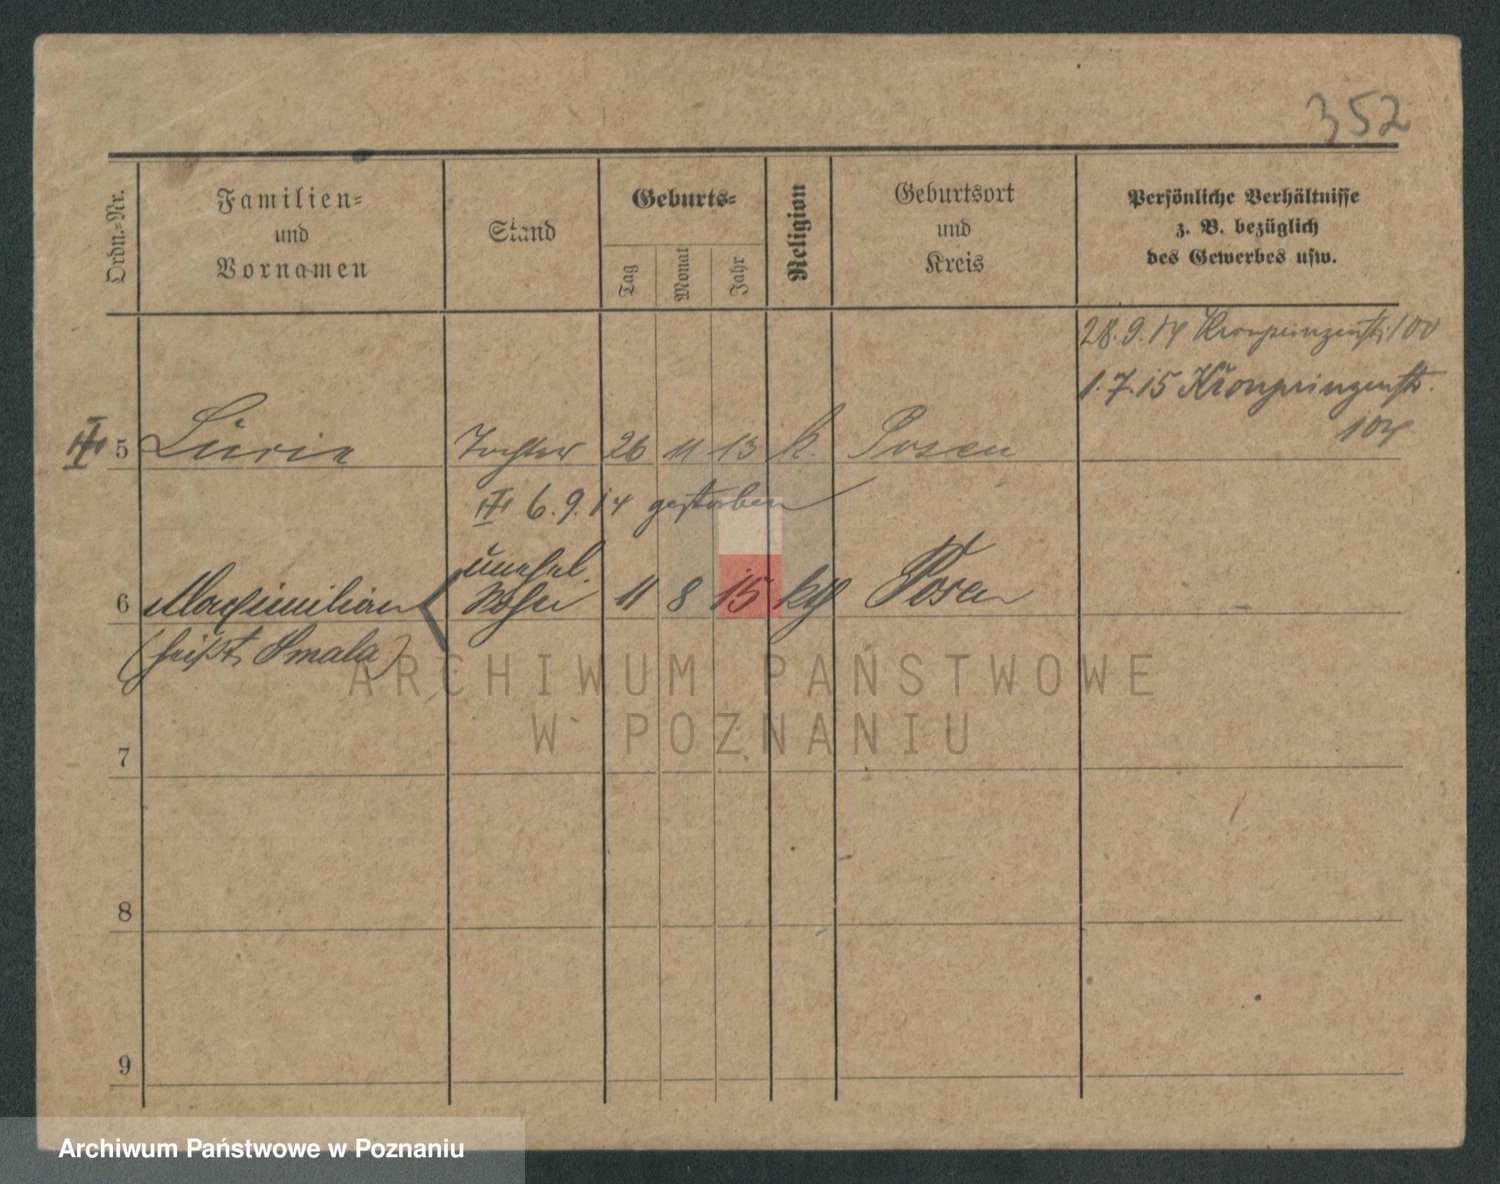 352
Ordn.-Nr.
Familien-
und
Vornamen
Stand
Geburts-
Tag
Monat
Jahr
Religion
Geburtsort
und
Kreis
Persönliche Verhältnisse
z. B. bezüglich
des Gewerbes usw.
28.9.14 Kronprinzenstr. 100
1.7.15 Kronprinzenstr.
104
5 Lucie Tochter 26 11 13 k. Posen
6.9.14 gestorben
unehel.
6 Maximilian Sohn 11 8 15 kth Posen
(heißt Smala)
ARCHIWUM PAŃSTWOWE
W POZNANIU
7
8
9
Archiwum Państwowe w Poznaniu